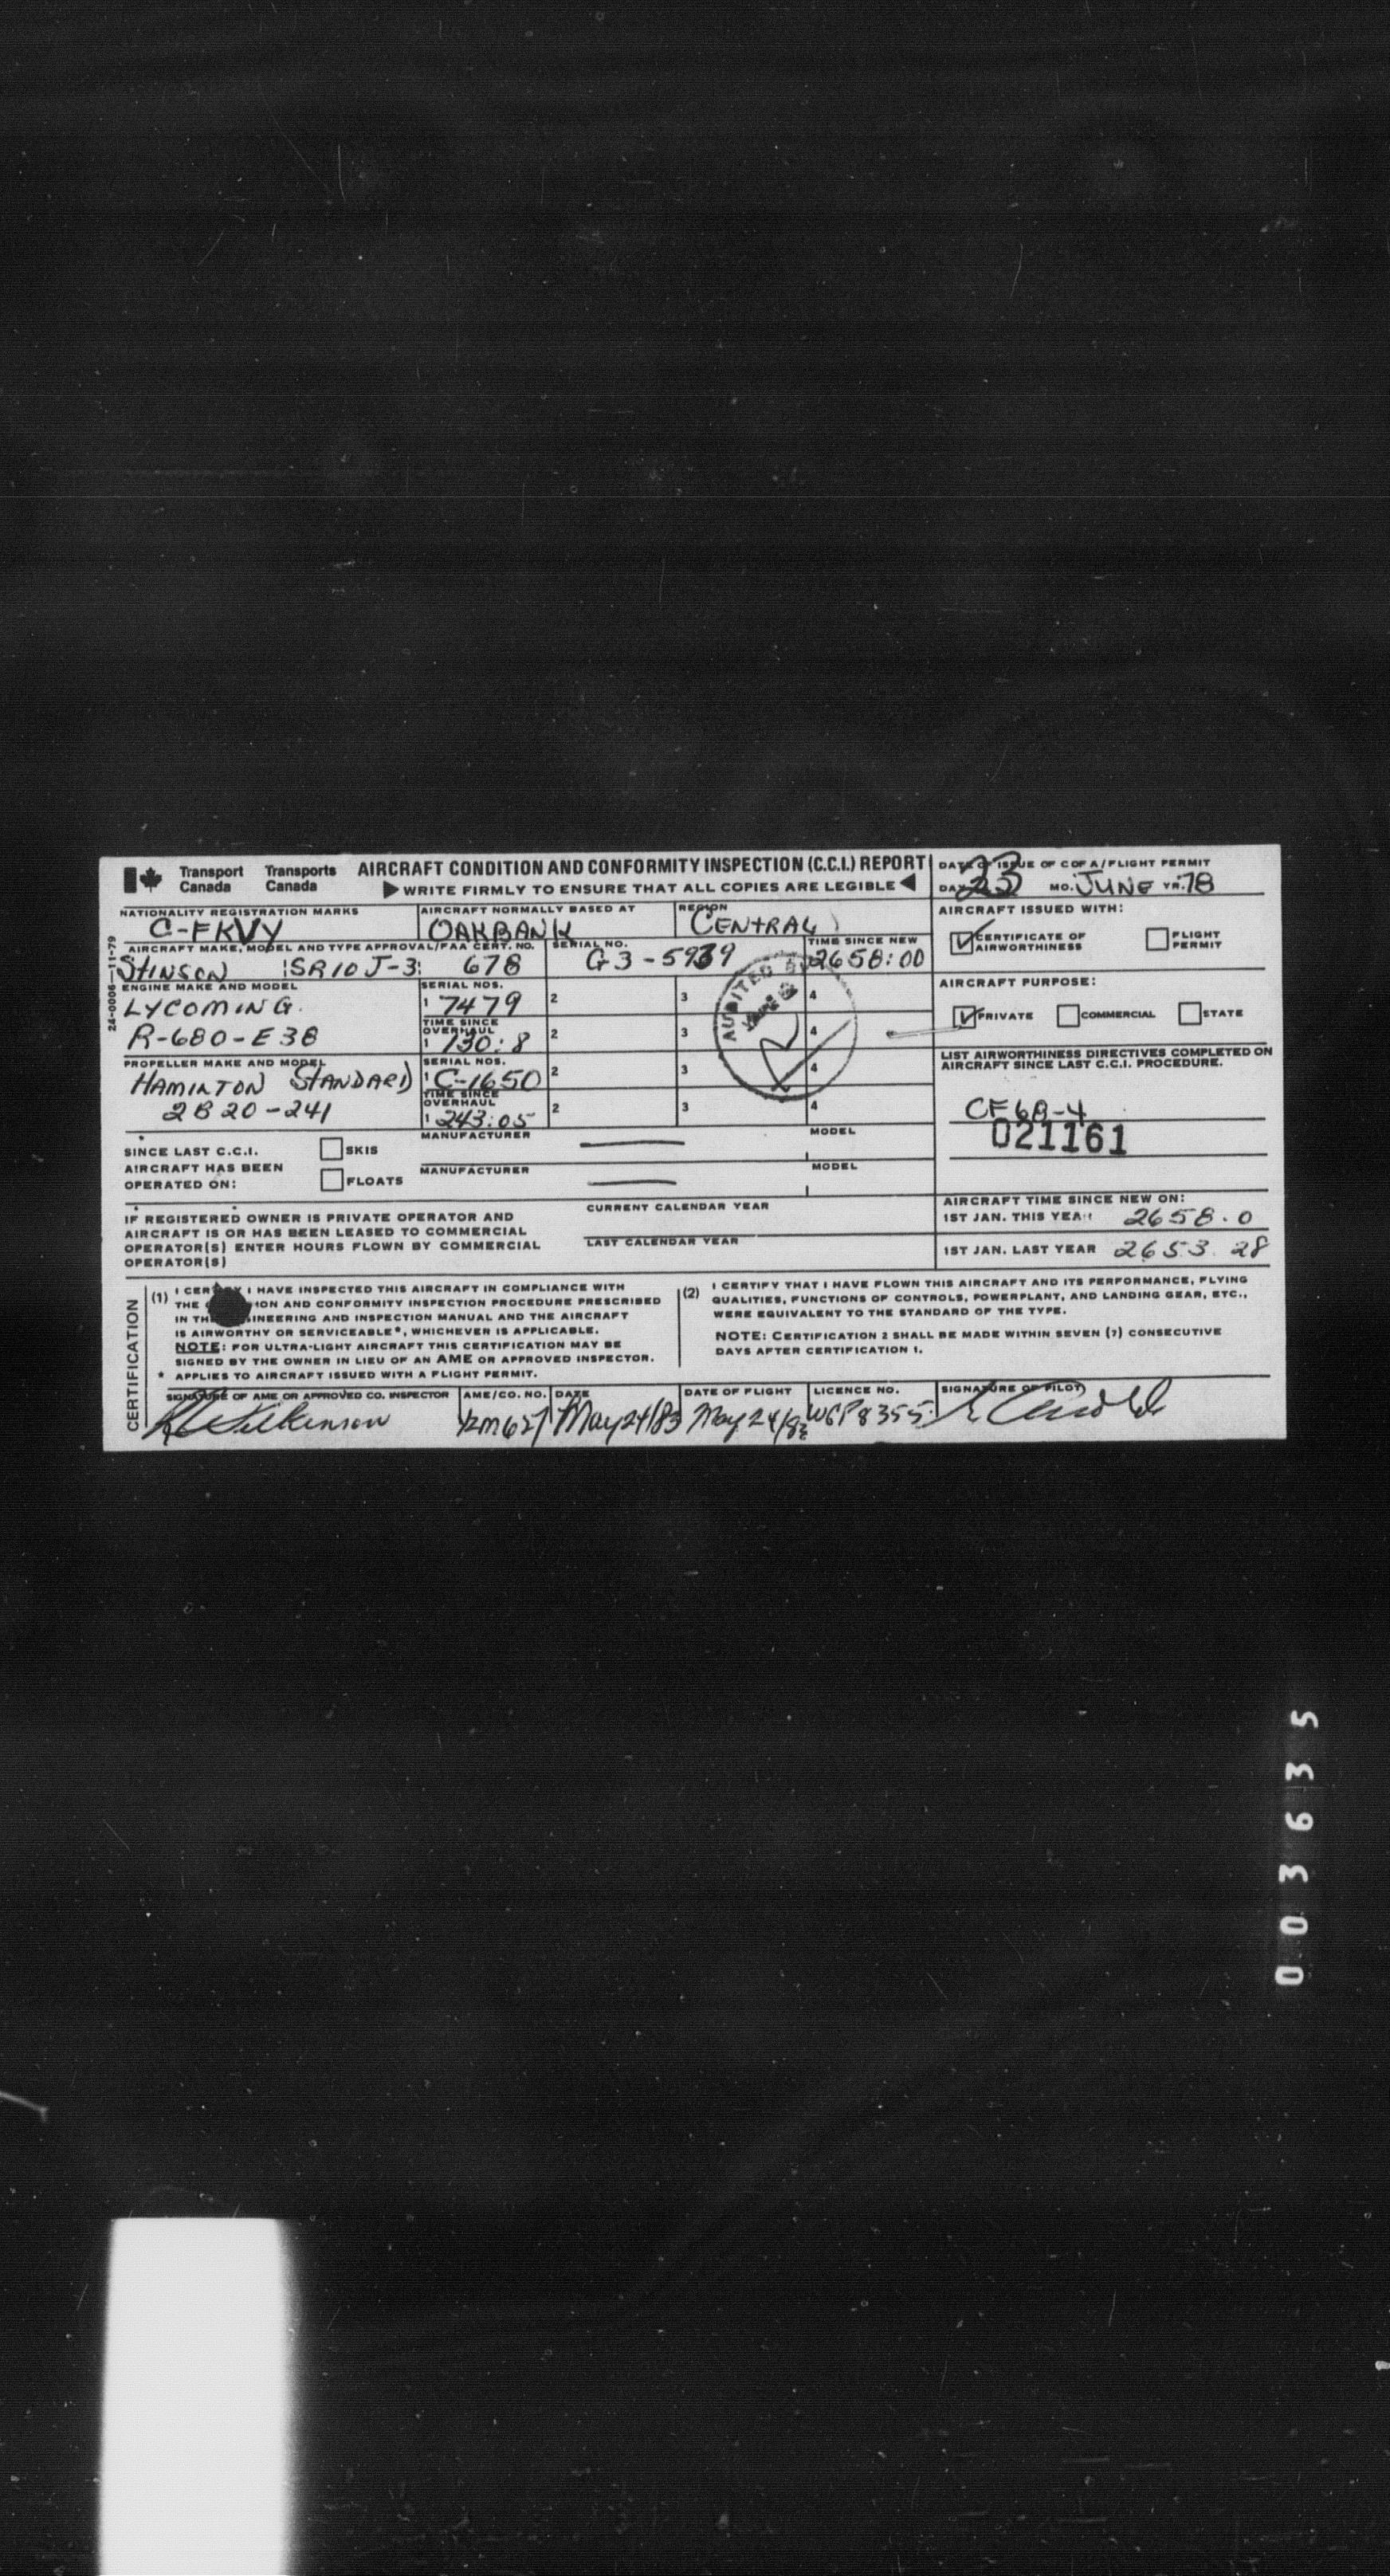 Transport Canada Transports Canada
AIRCRAFT CONDITION AND CONFORMITY INSPECTION (C.C.I.) REPORT
▶WRITE FIRMLY TO ENSURE THAT ALL COPIES ARE LEGIBLE◀
DATE OF ISSUE OF C OF A/FLIGHT PERMIT
DAY 23 MO. JUNE YR. 78
NATIONALITY REGISTRATION MARKS
C-FKVY
AIRCRAFT NORMALLY BASED AT
OAKBANK
REGION
CENTRAL
AIRCRAFT ISSUED WITH:
CERTIFICATE OF AIRWORTHINESS
FLIGHT PERMIT
AIRCRAFT MAKE, MODEL AND TYPE APPROVAL/FAA CERT. NO.
STINSON SR10J-3 678
SERIAL NO.
G3-5939
TIME SINCE NEW
2658:00
24-0006-11-79
ENGINE MAKE AND MODEL
LYCOMING
R-680-E3B
SERIAL NOS.
1 7479 2 3 4
TIME SINCE OVERHAUL
1 130:8 2 3 4
AUDITED
AIRCRAFT PURPOSE:
PRIVATE COMMERCIAL STATE
PROPELLER MAKE AND MODEL
HAMINTON STANDARD
2B20-241
SERIAL NOS.
1 C-1650 2 3 4
TIME SINCE OVERHAUL
1 243:05 2 3 4
LIST AIRWORTHINESS DIRECTIVES COMPLETED ON
AIRCRAFT SINCE LAST C.C.I. PROCEDURE.
CF68-4
021161
SINCE LAST C.C.I.
AIRCRAFT HAS BEEN
OPERATED ON:
SKIS
FLOATS
MANUFACTURER MODEL
MANUFACTURER MODEL
IF REGISTERED OWNER IS PRIVATE OPERATOR AND
AIRCRAFT IS OR HAS BEEN LEASED TO COMMERCIAL
OPERATOR(S) ENTER HOURS FLOWN BY COMMERCIAL
OPERATOR(S)
CURRENT CALENDAR YEAR
LAST CALENDAR YEAR
AIRCRAFT TIME SINCE NEW ON:
1ST JAN. THIS YEAR 2658.0
1ST JAN. LAST YEAR 2653.28
CERTIFICATION
(1) I CERTIFY I HAVE INSPECTED THIS AIRCRAFT IN COMPLIANCE WITH
THE CONDITION AND CONFORMITY INSPECTION PROCEDURE PRESCRIBED
IN THE ENGINEERING AND INSPECTION MANUAL AND THE AIRCRAFT
IS AIRWORTHY OR SERVICEABLE*, WHICHEVER IS APPLICABLE.
NOTE: FOR ULTRA-LIGHT AIRCRAFT THIS CERTIFICATION MAY BE
SIGNED BY THE OWNER IN LIEU OF AN AME OR APPROVED INSPECTOR.
* APPLIES TO AIRCRAFT ISSUED WITH A FLIGHT PERMIT.
(2) I CERTIFY THAT I HAVE FLOWN THIS AIRCRAFT AND ITS PERFORMANCE, FLYING
QUALITIES, FUNCTIONS OF CONTROLS, POWERPLANT, AND LANDING GEAR, ETC.,
WERE EQUIVALENT TO THE STANDARD OF THE TYPE.
NOTE: CERTIFICATION 2 SHALL BE MADE WITHIN SEVEN (7) CONSECUTIVE
DAYS AFTER CERTIFICATION 1.
SIGNATURE OF AME OR APPROVED CO. INSPECTOR
Wilkinson
AME/CO. NO.
DATE
May 24/83
DATE OF FLIGHT
May 24/83
LICENCE NO.
WGP8355
SIGNATURE OF PILOT
003635